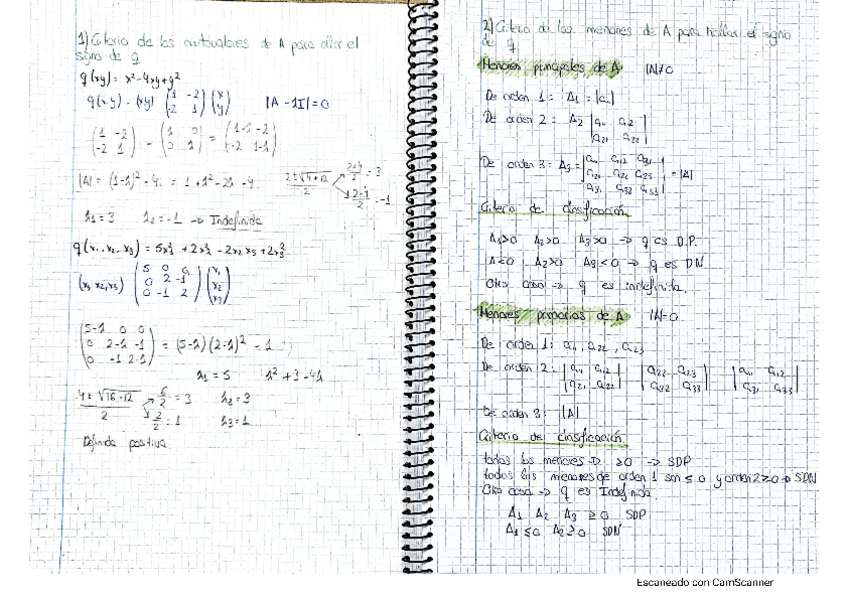 1) Criterio de los autovalores de A para el
signo de q
q(x,y) = x² - 4xy + y²
q(x,y) = (x y) (1 -2 / -2 1) (x / y) |A - λI| = 0
(1 -2 / -2 1) - (λ 0 / 0 λ) = (1-λ -2 / -2 1-λ)
|A| = (1-λ)² - 4 = 1 + λ² - 2λ - 4 (2 ± √4+12)/2 (2+4)/2 = 3 (2-4)/2 = -1
λ1 = 3 λ2 = -1 → Indefinida
q(x1, x2, x3) = 5x1² + 2x2² - 2x2x3 + 2x3²
(x1, x2, x3) (5 0 0 / 0 2 -1 / 0 -1 2) (x1 / x2 / x3)
(5-λ 0 0 / 0 2-λ -1 / 0 -1 2-λ) = (5-λ)(2-λ)² - 1
λ1 = 5 λ² + 3 - 4λ
(4 ± √16-12)/2 6/2 = 3 λ2 = 3
2/2 = 1 λ3 = 1
Definida positiva
2) Criterio de los menores de A para hallar el signo
de q
Menores principales de A |A|≠0
De orden 1: A1 = |a11|
De orden 2: A2 |a11 a12 / a21 a22|
De orden 3: A3 = |a11 a12 a31 / a21 a22 a23 / a31 a32 a33| = |A|
Criterio de clasificación
A1>0 A2>0 A3>0 → q es D.P.
A1<0 A2>0 A3<0 → q es DN
Otro caso → q es indefinida.
Menores primarios de A |A|=0
De orden 1: a11, a22, a23
De orden 2: |a11 a12 / a21 a22| |a22 a23 / a32 a33| |a11 a12 / a31 a33|
De orden 3: |A|
Criterio de clasificación
todos los menores → ≥0 → SDP
todos los menores de orden 1 son ≤ 0 y orden 2 ≥ 0 → SDN
Otro caso → q es Indefinida.
A1 A2 A3 ≥ 0 SDP
A1 ≤ 0 A2 ≥ 0 SDN
Escaneado con CamScanner